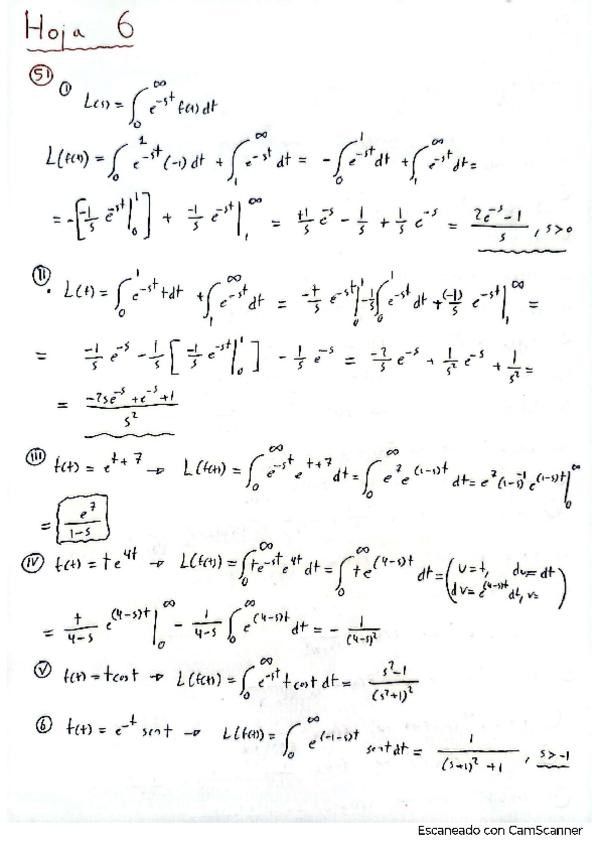 Hoja 6
51 i L(s) = ∫₀^∞ e^{-st} f(t) dt
L(f(t)) = ∫₀^1 e^{-st} (-1) dt + ∫₁^∞ e^{-st} dt = - ∫₀^1 e^{-st} dt + ∫₁^∞ e^{-st} dt =
= -[ -1/s e^{-st} |₀^1 ] + -1/s e^{-st} |₁^∞ = +1/s e^{-s} - 1/s + 1/s e^{-s} = (2e^{-s} - 1)/s , s>0
ii. L(t) = ∫₀^1 e^{-st} t dt + ∫₁^∞ e^{-st} dt = -t/s e^{-st} |₀^1 - -1/s ∫₀^1 e^{-st} dt + (-1)/s e^{-st} |₁^∞ =
= -1/s e^{-s} - -1/s [ -1/s e^{-st} |₀^1 ] - 1/s e^{-s} = -2/s e^{-s} + 1/s² e^{-s} + 1/s² =
= (-2se^{-s} + e^{-s} + 1)/s²
iii f(t) = e^{t+7} → L(f(t)) = ∫₀^∞ e^{-st} e^{t+7} dt = ∫₀^∞ e^7 e^{(1-s)t} dt = e^7 (1-s)^{-1} e^{(1-s)t} |₀^∞
= e^7/(1-s)
iv f(t) = t e^{4t} → L(f(t)) = ∫₀^∞ t e^{-st} e^{4t} dt = ∫₀^∞ t e^{(4-s)t} dt = (u=t, du=dt
dv= e^{(4-s)t} dt, v= )
= t/(4-s) e^{(4-s)t} |₀^∞ - 1/(4-s) ∫₀^∞ e^{(4-s)t} dt = - 1/(4-s)²
v f(t) = t cos t → L(f(t)) = ∫₀^∞ e^{-st} t cos t dt = (s²-1)/(s²+1)²
6 f(t) = e^{-t} sen t → L(f(t)) = ∫₀^∞ e^{(-1-s)t} sen t dt = 1/((s+1)² + 1) , s>-1
Escaneado con CamScanner